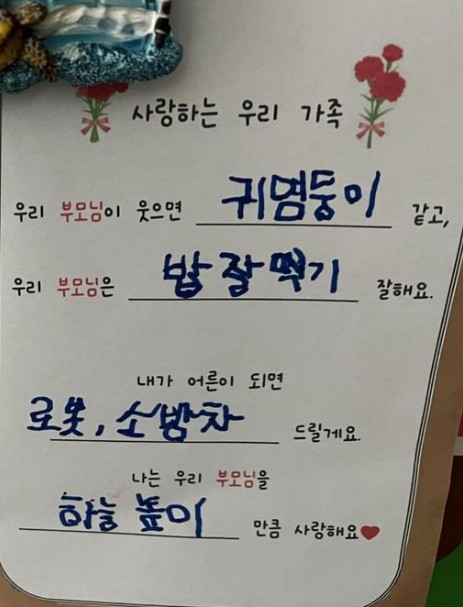 사랑하는 우리 가족
우리 부모님이 웃으면 귀염둥이 같고,
우리 부모님은 밥 잘 먹기 잘해요.
내가 어른이 되면
로봇, 소방차 드릴게요.
나는 우리 부모님을
하늘 높이 만큼 사랑해요